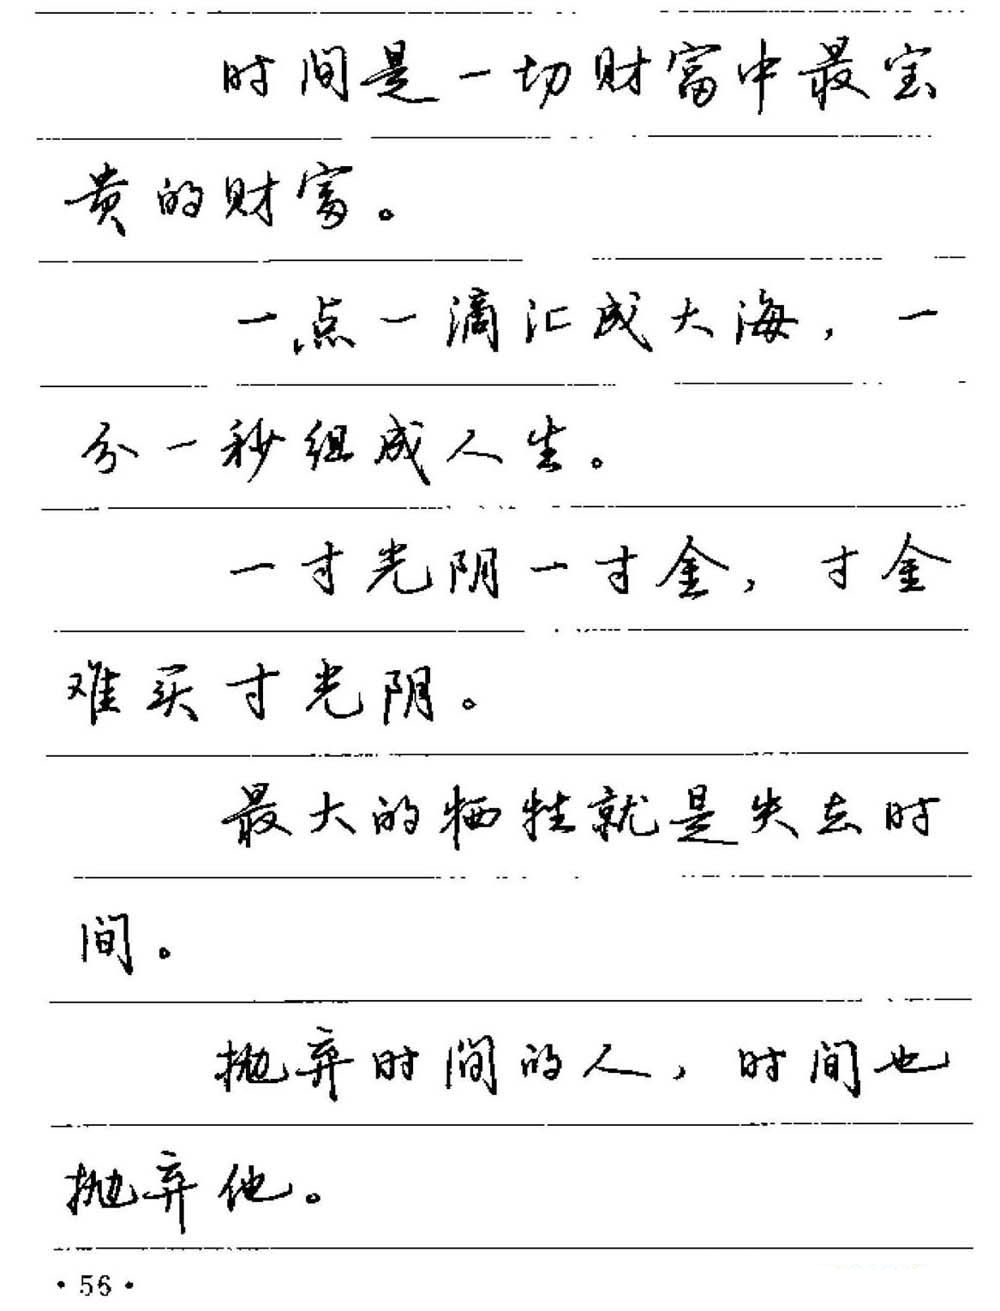 时间是一切财富中最宝
贵的财富。
一点一滴汇成大海，一
分一秒组成人生。
一寸光阴一寸金，寸金
难买寸光阴。
最大的牺牲就是失去时
间。
抛弃时间的人，时间也
抛弃他。
·56·